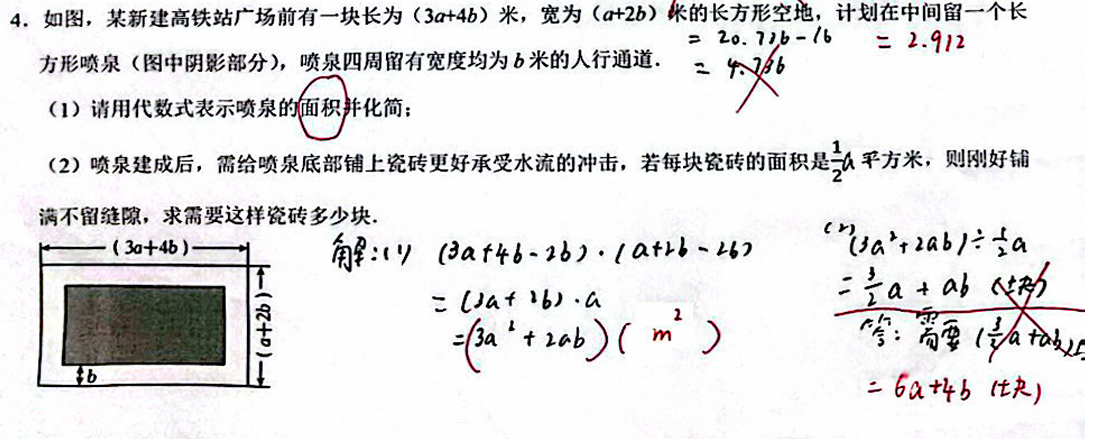 4. 如图，某新建高铁站广场前有一块长为（3a+4b）米，宽为（a+2b）米的长方形空地，计划在中间留一个长
= 20.736-16 = 2.912
方形喷泉（图中阴影部分），喷泉四周留有宽度均为 b 米的人行通道.
= 4.736
（1）请用代数式表示喷泉的面积并化简；
（2）喷泉建成后，需给喷泉底部铺上瓷砖更好承受水流的冲击，若每块瓷砖的面积是½a 平方米，则刚好铺
满不留缝隙，求需要这样瓷砖多少块.
（3a+4b）
（a+2b）
b
解:(1) (3a+4b-2b)·(a+2b-2b)
= (3a+2b)·a
=(3a²+2ab)( m² )
(2) (3a²+2ab)÷½a
= 3/2 a + ab (块)
答: 需要 (3/2 a+ab)块
= 6a+4b (块)